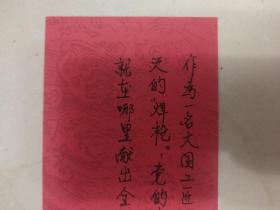 作为一名大国工匠
天的“焊枪”，党的
就在哪里献出全